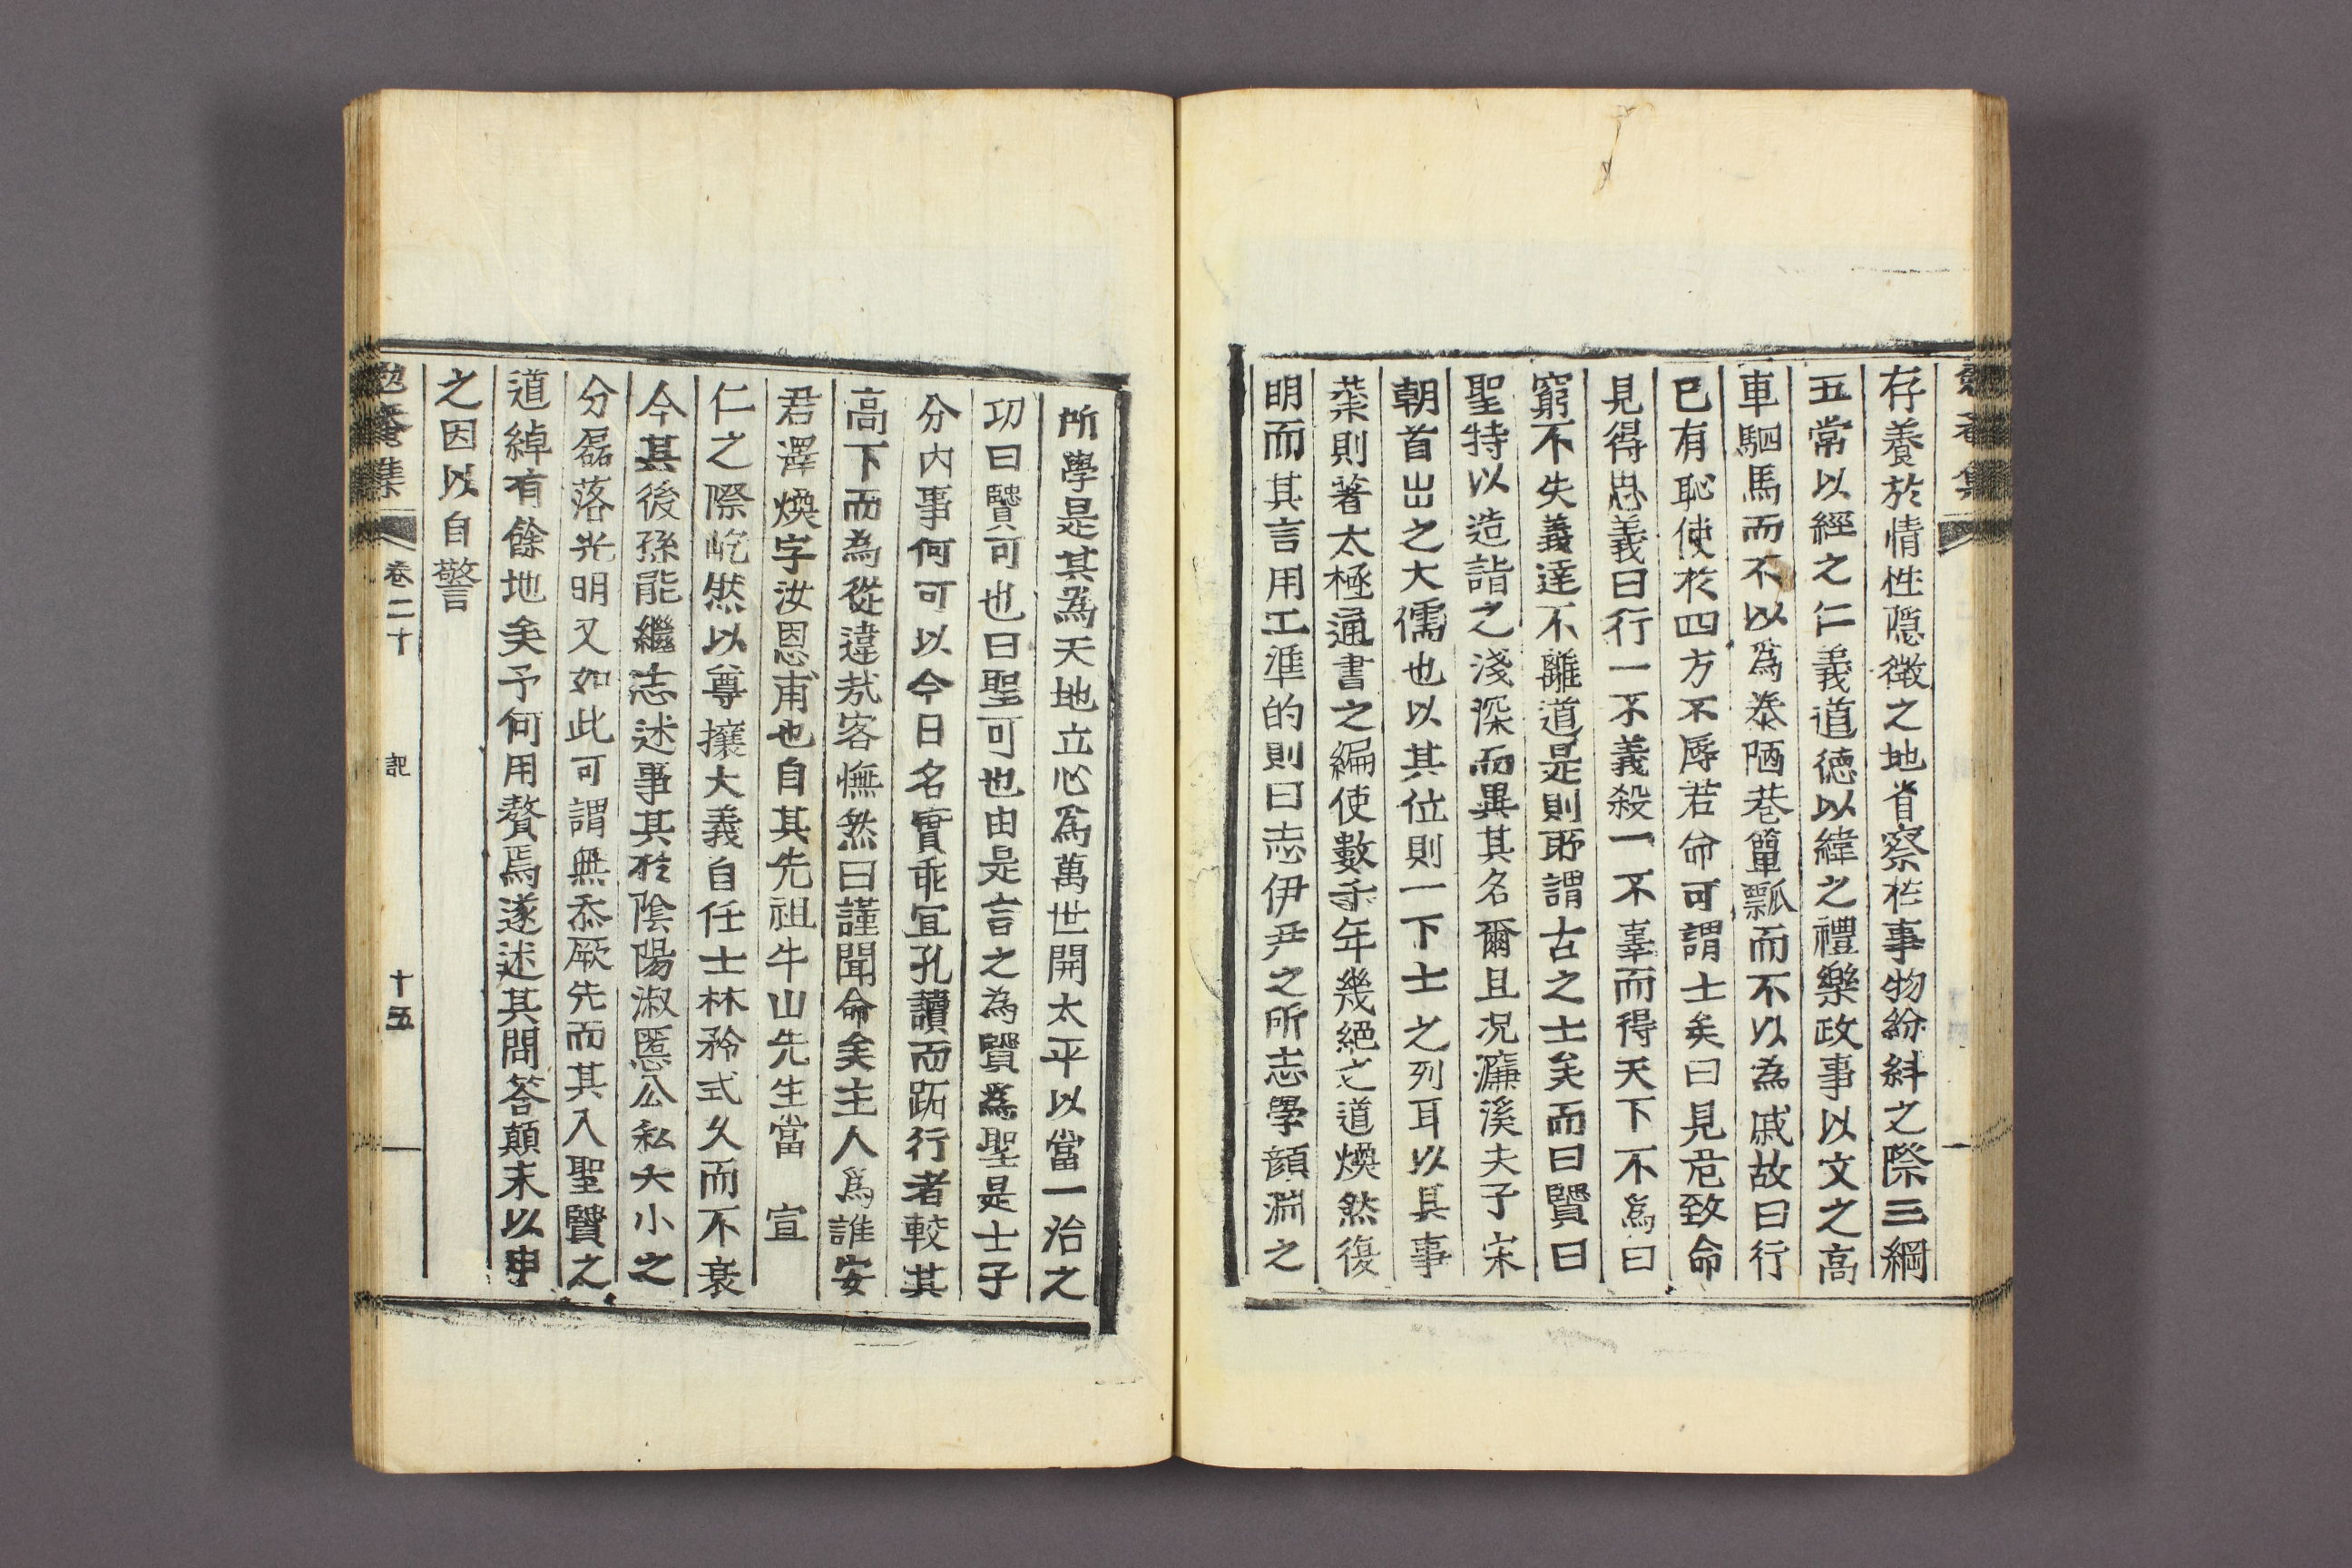 勉菴集
存養於情性隱微之地省察在事物紛糾之際三綱
五常以經之仁義道德以緯之禮樂政事以文之高
車駟馬而不以爲泰陋巷簞瓢而不以為戚故曰行
已有恥使於四方不辱君命可謂士矣曰見危致命
見得思義曰行一不義殺一不辜而得天下不爲曰
窮不失義達不離道是則所謂古之士矣而曰賢曰
聖特以造詣之淺深而異其名爾且况濂溪夫子宋
朝首出之大儒也以其位則一下士之列耳以其事
業則著太極通書之編使數千年幾絕之道煥然復
明而其言用工準的則曰志伊尹之所志學顔淵之
所學是其爲天地立心爲萬世開太平以當一治之
功曰賢可也曰聖可也由是言之為賢爲聖是士子
分內事何可以今日名實乖宜孔讀而跖行者較其
高下而為從違哉客憮然曰謹聞命矣主人爲誰安
君澤煥字汝恩甫也自其先祖牛山先生當　宣
仁之際屹然以尊攘大義自任士林矜式久而不衰
今其後孫能繼志述事其於陰陽淑慝公私大小之
分磊落光明又如此可謂無忝厥先而其入聖賢之
道綽有餘地矣予何用贅焉遂述其問答顛末以申
之因以自警
勉菴集　卷二十　記　十五